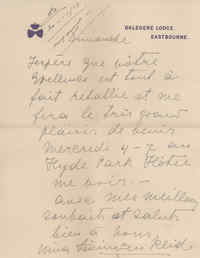 BALEGERE LODGE.
EASTBOURNE.
Dimanche
J'espère que votre
est tout à
fait rétablie et me
fera le très grand
plaisir de venir
Mercredi 4-7 au
Hyde Park Hotel
me voir. —
avec mes meilleurs
souhaits et saluts
bien à vous,
Reid